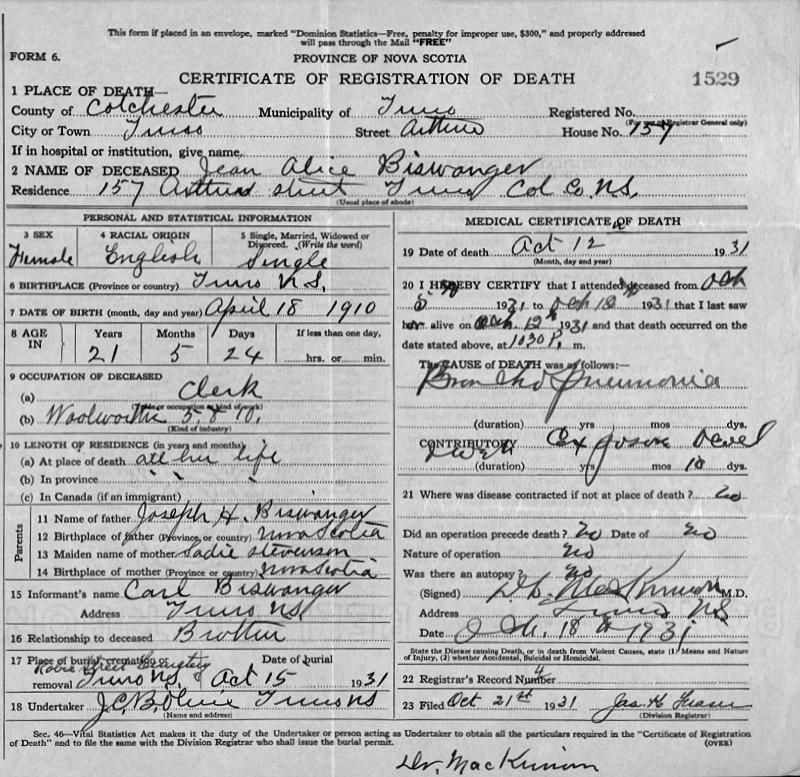 This form if placed in an envelope, marked "Dominion Statistics—Free, penalty for improper use, $300," and properly addressed
will pass through the Mail "FREE"
FORM 6.
PROVINCE OF NOVA SCOTIA
CERTIFICATE OF REGISTRATION OF DEATH
1529
1 PLACE OF DEATH—
County of Colchester Municipality of Truro Registered No.
(For use of Registrar General only)
City or Town Truro Street Arthur House No. 157
If in hospital or institution, give name
2 NAME OF DECEASED Jean Alice Biswanger
Residence 157 Arthur street Truro Col Co. N.S.
(Usual place of abode)
PERSONAL AND STATISTICAL INFORMATION
3 SEX 4 RACIAL ORIGIN 5 Single, Married, Widowed or
Divorced. (Write the word)
Female English Single
6 BIRTHPLACE (Province or country) Truro N.S.
7 DATE OF BIRTH (month, day and year) April 18 1910
8 AGE IN Years Months Days If less than one day,
21 5 24 hrs. or min.
9 OCCUPATION OF DECEASED
(a) Clerk
(b) Woolworths 5 & 10.
(Kind of industry)
10 LENGTH OF RESIDENCE (in years and months)
(a) At place of death all her life
(b) In province " " "
(c) In Canada (if an immigrant)
Parents
11 Name of father Joseph H. Biswanger
12 Birthplace of father (Province or country) Nova Scotia
13 Maiden name of mother Sadie Stevenson
14 Birthplace of mother (Province or country) Nova Scotia
15 Informant's name Carl Biswanger
Address Truro NS
16 Relationship to deceased Brother
17 Place of burial, cremation or Date of burial
Robie Street Cemetery
removal Truro N.S. Oct 15 1931
18 Undertaker Truro NS
(Name and address)
MEDICAL CERTIFICATE OF DEATH
19 Date of death Oct 12 1931
(Month, day and year)
20 I HEREBY CERTIFY that I attended deceased from Oct
5 1931 to Oct 1931 that I last saw
her alive on Oct. 12th 1931 and that death occurred on
date stated above, at 1030 P. m.
The CAUSE OF DEATH was as follows:—
Broncho Pneumonia
(duration) yrs mos dys.
CONTRIBUTORY
(duration) yrs mos 10 dys.
21 Where was disease contracted if not at place of death? No
Did an operation precede death? No Date of No
Nature of operation No
Was there an autopsy? No
(Signed) MacKinnon M.D.
Address Truro NS
Date Oct. 18 1931
State the Disease causing Death, or in death from Violent Causes, state (1) Means and Nature
of Injury, (2) whether Accidental, Suicidal or Homicidal.
22 Registrar's Record Number 4
23 Filed Oct 21st 1931 Jas H Fraser
(Division Registrar)
Sec. 46—Vital Statistics Act makes it the duty of the Undertaker or person acting as Undertaker to obtain all the particulars required in the "Certificate of Registration
of Death" and to file the same with the Division Registrar who shall issue the burial permit.
(OVER)
Dr. MacKinnon